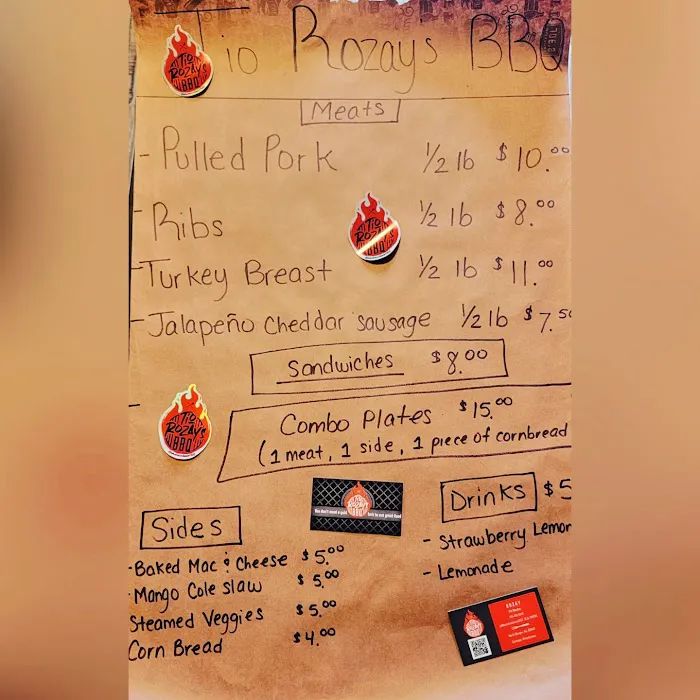 Tio Rozays BBQ
TIO ROZAYS BBQ
Meats
- Pulled Pork ½ lb $10.00
- Ribs ½ lb $8.00
TIO ROZAYS BBQ
- Turkey Breast ½ lb $11.00
- Jalapeño Cheddar sausage ½ lb $7.50
Sandwiches $8.00
Combo Plates $15.00
(1 meat, 1 side, 1 piece of cornbread
TIO ROZAYS BBQ
Sides
- Baked Mac & Cheese $5.00
- Mango Cole slaw $5.00
Steamed Veggies $5.00
Corn Bread $4.00
Drinks $5
- Strawberry Lemon
- Lemonade
ROZAY